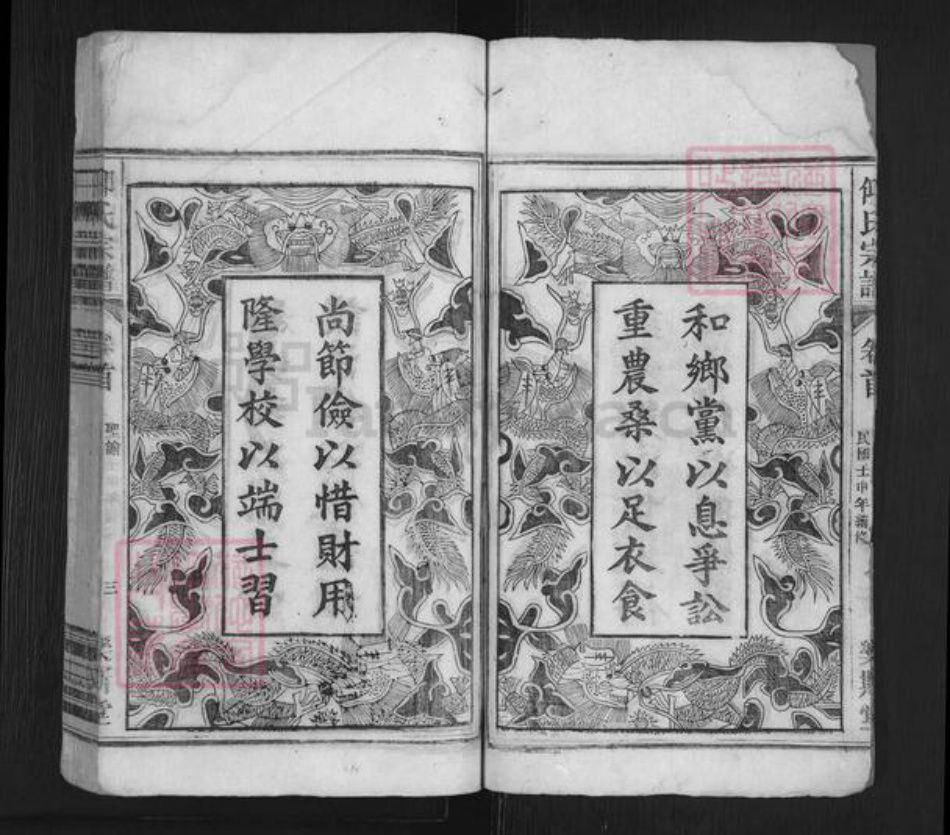 何氏宗譜
卷首
民國壬申年續修
和鄉黨以息爭訟
重農桑以足衣食
尚節儉以惜財用
隆學校以端士習
氏宗譜
首
聖諭
三